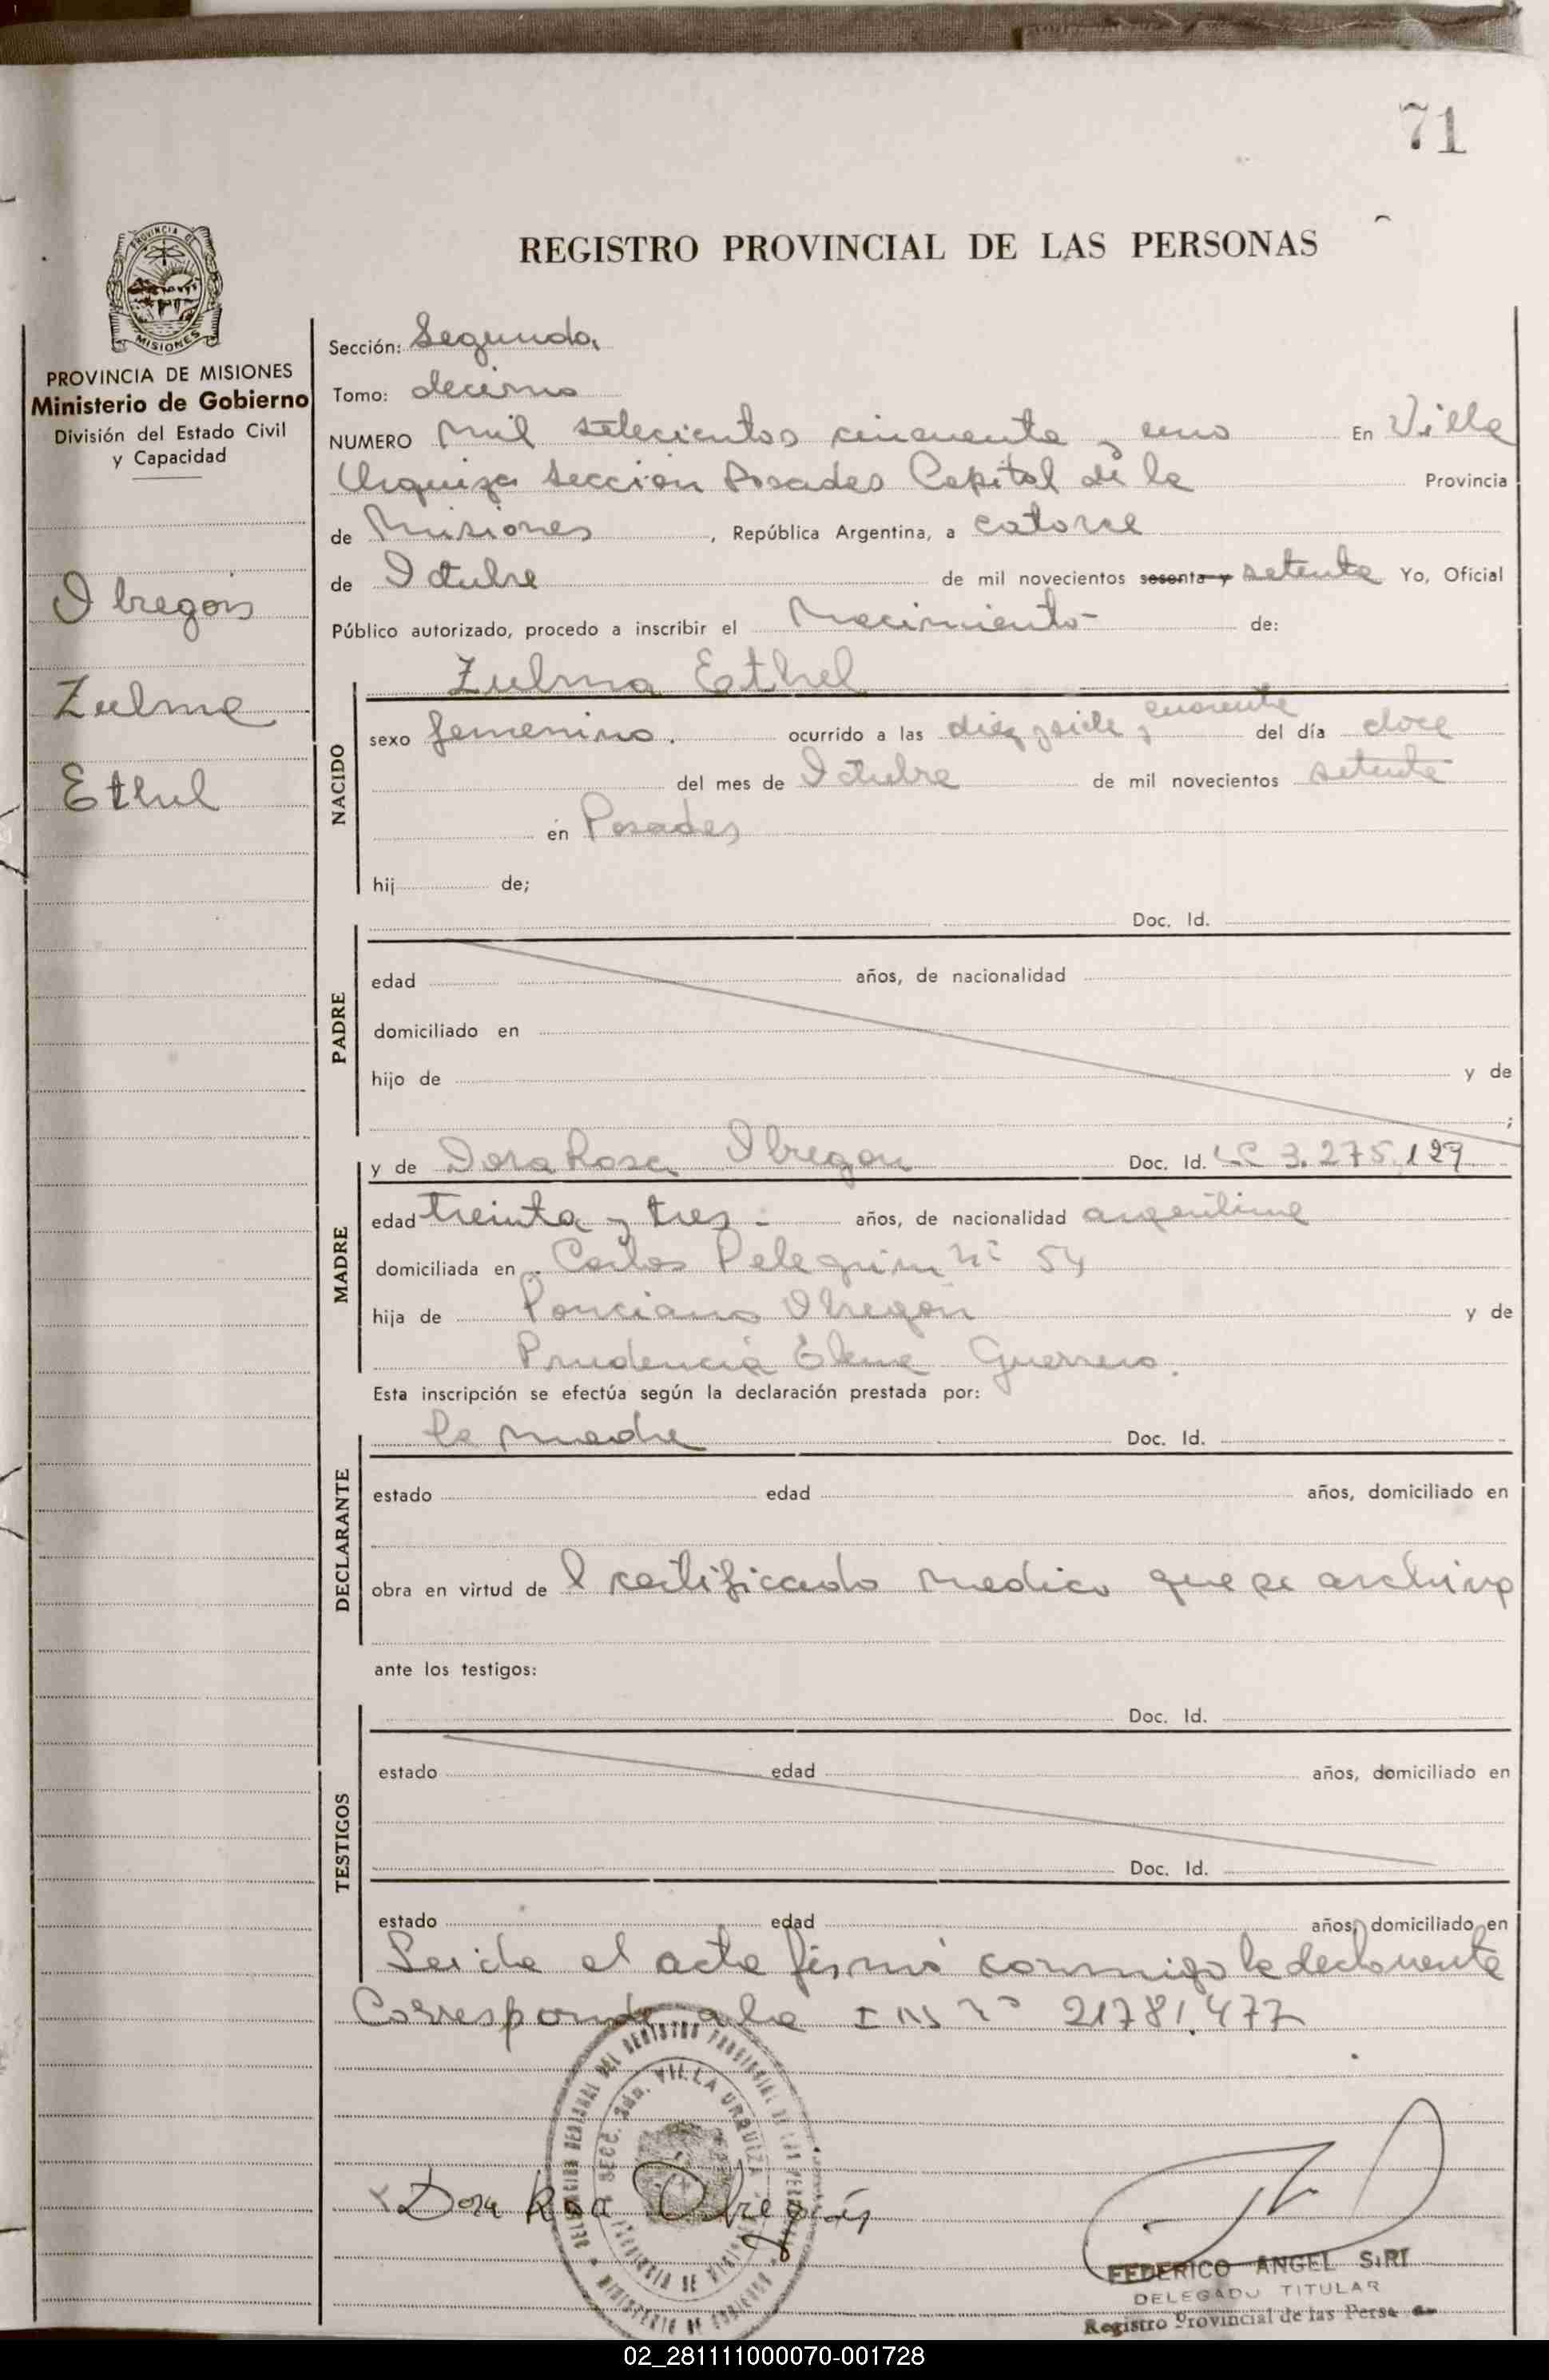 71
REGISTRO PROVINCIAL DE LAS PERSONAS
PROVINCIA DE MISIONES
PROVINCIA DE MISIONES
Ministerio de Gobierno
División del Estado Civil
y Capacidad
Obregon
Zulma
Ethel
Sección: Segunda
Tomo: decimo
NUMERO Mil setecientos cincuenta y uno En Villa
Urquiza Seccion Posadas Capital de la Provincia
de Misiones, República Argentina, a catorce
de Octubre de mil novecientos sesenta y setenta Yo, Oficial
Público autorizado, procedo a inscribir el Nacimiento de:
Zulma Ethel
NACIDO
sexo femenino. ocurrido a las diez y siete y cuarenta del día doce
del mes de Octubre de mil novecientos setenta
en Posadas
hij de;
PADRE
Doc. Id.
edad años, de nacionalidad
domiciliado en
hijo de y de
;
MADRE
y de Dora Rosa Obregon Doc. Id. LC 3.275.129
edad treinta y tres - años, de nacionalidad argentina
domiciliada en Carlos Pelegrini Nº 54
hija de Ponciano Obregon y de
Prudencia Elena Guerrero.
Esta inscripción se efectúa según la declaración prestada por:
DECLARANTE
la madre Doc. Id.
estado edad años, domiciliado en
obra en virtud de l certificado medico que se archiva
ante los testigos:
TESTIGOS
Doc. Id.
estado edad años, domiciliado en
Doc. Id.
estado edad años, domiciliado en
Leida el acta firmó conmigo la declarante
Corresponde a la INº 21781.477
SECC. 2da. VILLA URQUIZA
PROVINCIA DE MISIONES
MINISTERIO DE GOBIERNO
Dora Rosa Obregón
FEDERICO ANGEL SIRI
DELEGADO TITULAR
Registro Provincial de las Perso
02_281111000070-001728